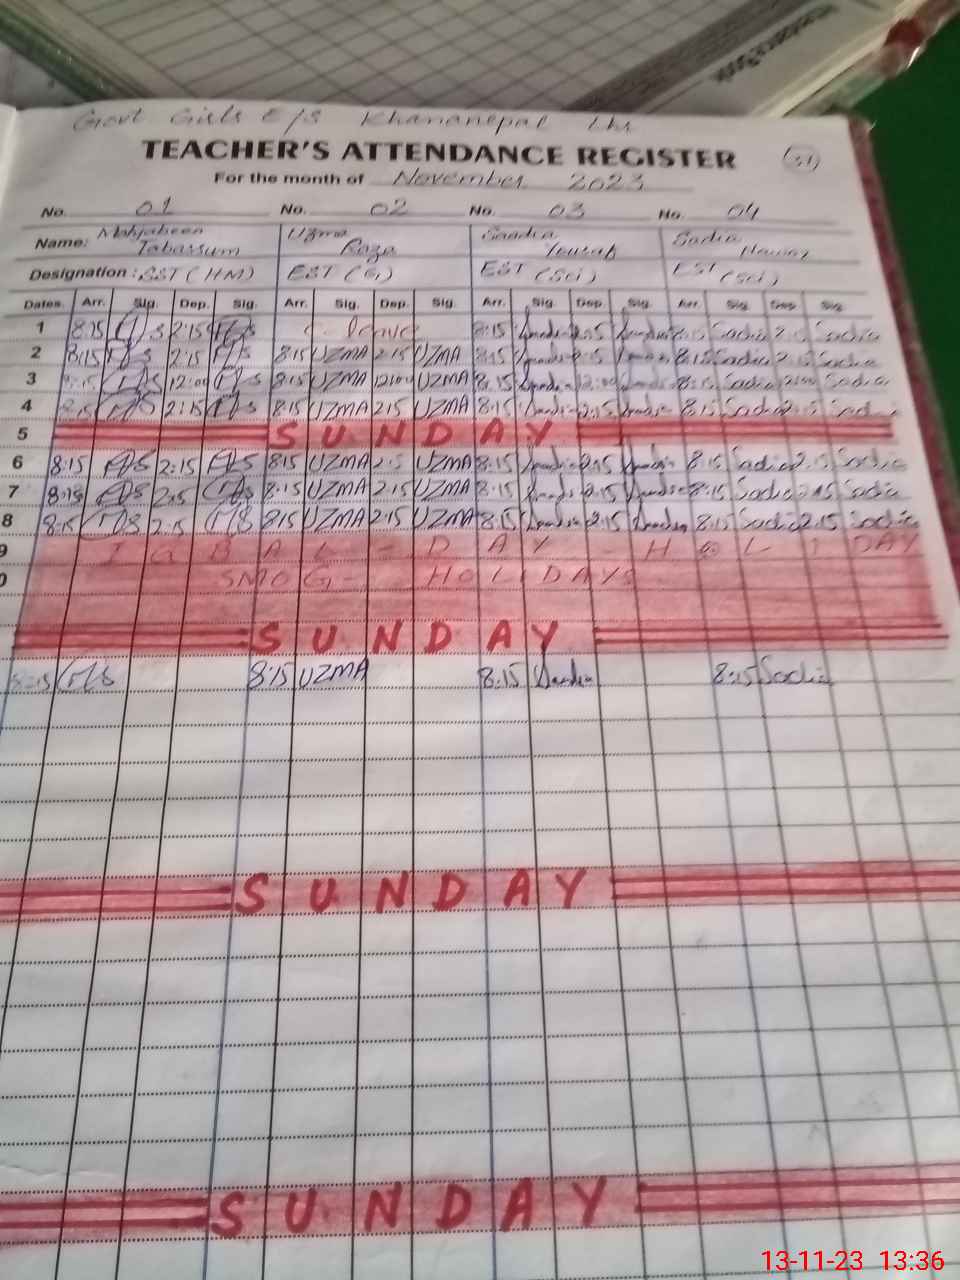 Govt Girls E/S Khananepal Lhr
TEACHER'S ATTENDANCE REGISTER 31
For the month of November 2023
No. 01 No. 02 No. 03 No. 04
Name: Mahjabeen Tabassum Uzma Raza Saadia Yousaf Sadia
Designation: SST (HM) EST (G) EST (Sci) EST (Sci)
Dates. Arr. Sig. Dep. Sig. Arr. Sig. Dep. Sig. Arr. Sig. Dep. Sig. Arr. Sig. Dep. Sig.
1 8:15 2:15 C-leave 8:15 Saadia 2:15 Saadia 8:15 Sadia 2:15 Sadia
2 8:15 2:15 8:15 UZMA 2:15 UZMA 8:15 Saadia 2:15 Saadia 8:15 Sadia 2:15 Sadia
3 8:15 12:00 8:15 UZMA 12:00 UZMA 8:15 Saadia 12:00 Saadia 8:15 Sadia 12:00 Sadia
4 8:15 2:15 8:15 UZMA 2:15 UZMA 8:15 Saadia 2:15 Saadia 8:15 Sadia 2:15 Sadia
5 SUNDAY
6 8:15 2:15 8:15 UZMA 2:15 UZMA 8:15 Saadia 2:15 Saadia 8:15 Sadia 2:15 Sadia
7 8:15 2:15 8:15 UZMA 2:15 UZMA 8:15 Saadia 2:15 Saadia 8:15 Sadia 2:15 Sadia
8 8:15 2:15 8:15 UZMA 2:15 UZMA 8:15 Saadia 2:15 Saadia 8:15 Sadia 2:15 Sadia
9 IQBAL-DAY HOLIDAY
0 SMOG- HOLIDAYS
SUNDAY
8:15 8:15 UZMA 8:15 Saadia 8:15 Sadia
SUNDAY
SUNDAY
13-11-23 13:36